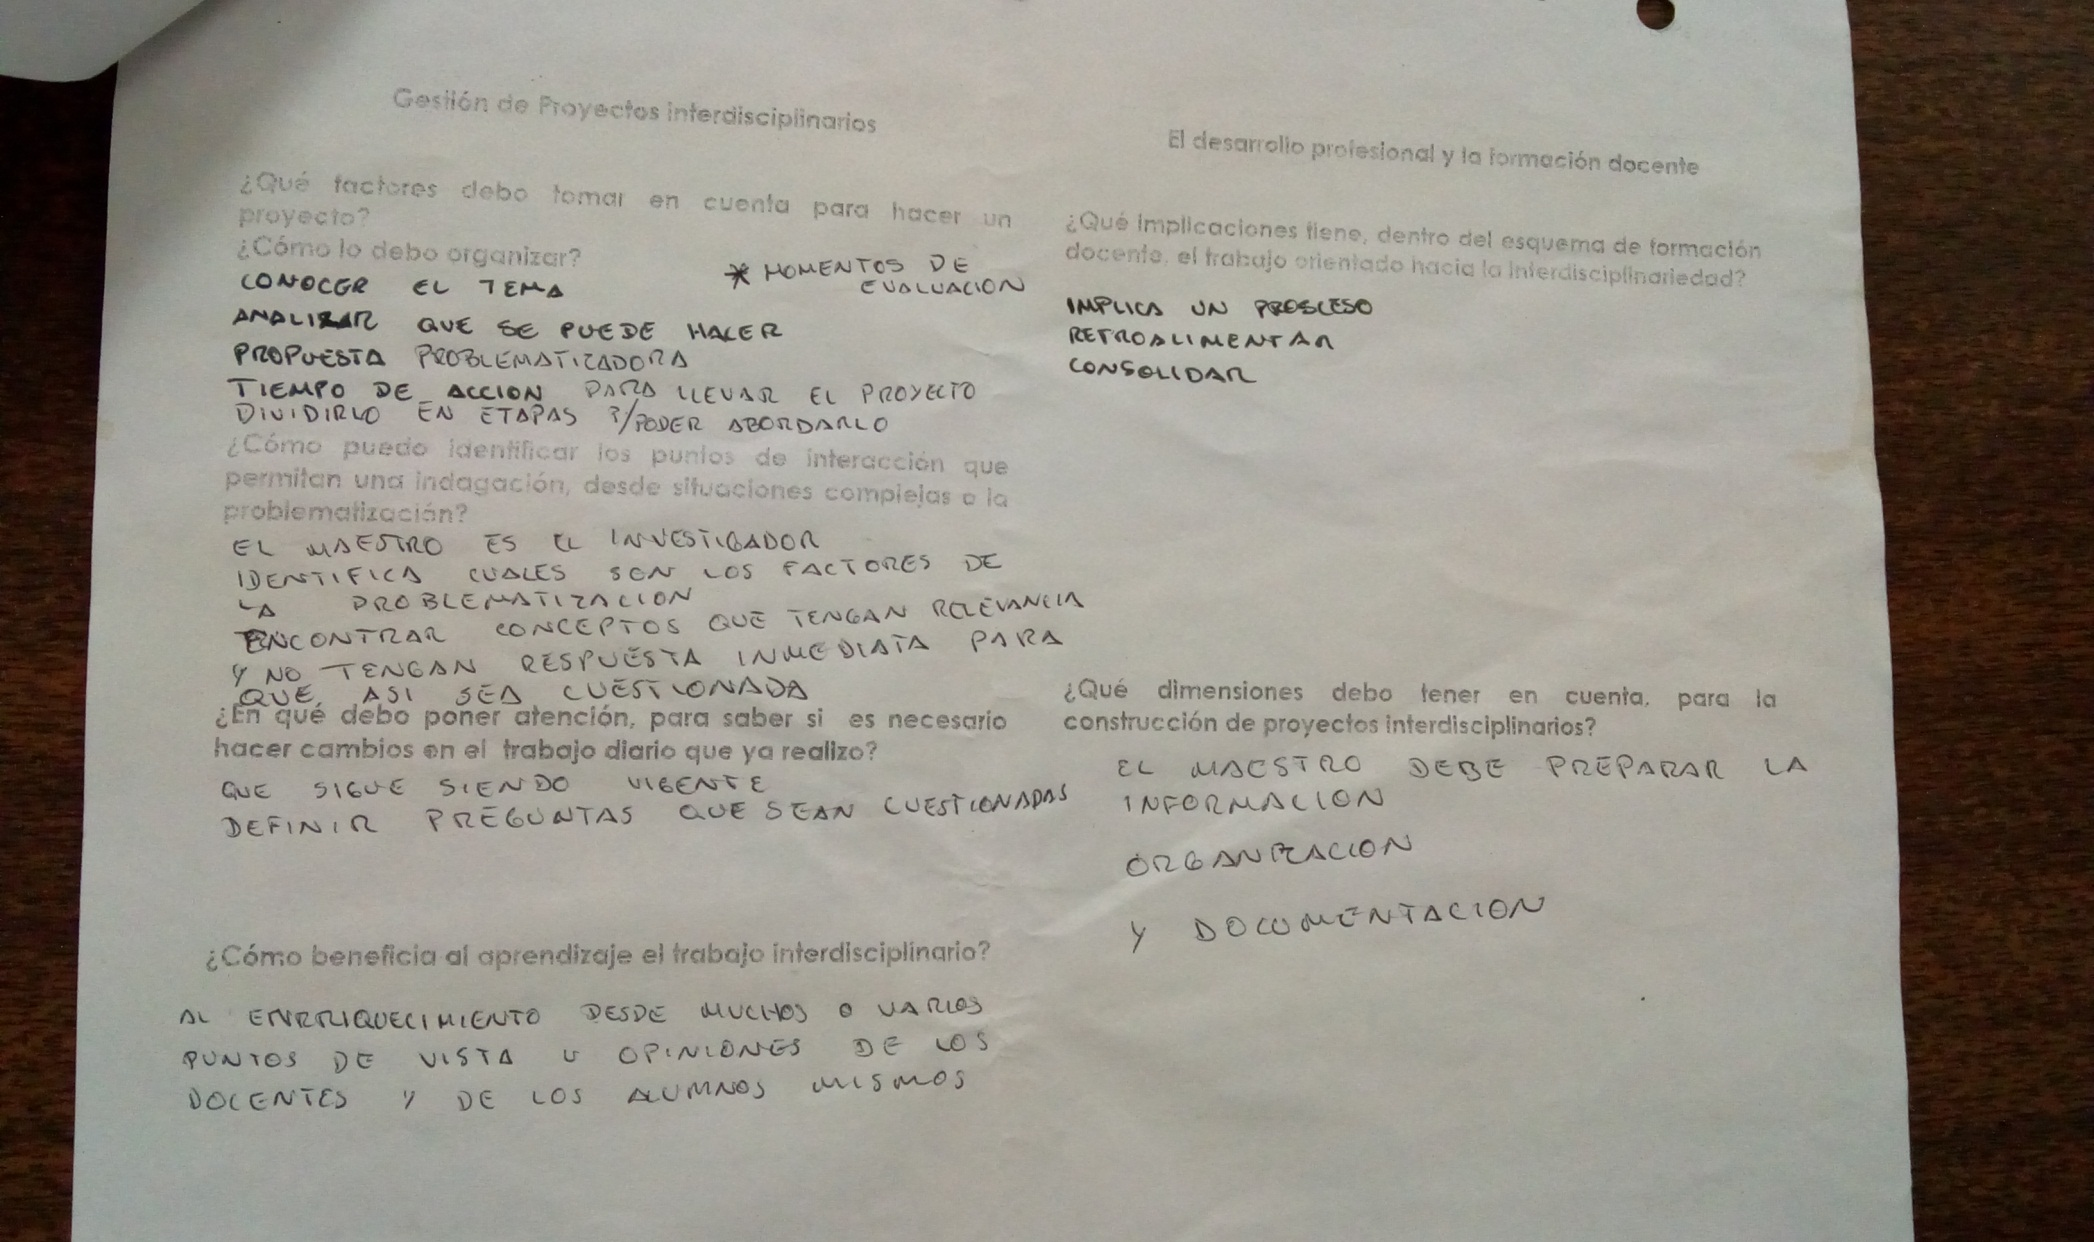 Gestión de Proyectos interdisciplinarios
¿Qué factores debo tomar en cuenta para hacer un
proyecto?
¿Cómo lo debo organizar?
* MOMENTOS DE
EVALUACION
CONOCER EL TEMA
ANALIZAR QUE SE PUEDE HACER
PROPUESTA PROBLEMATIZADORA
TIEMPO DE ACCION PARA LLEVAR EL PROYECTO
DIVIDIRLO EN ETAPAS P/PODER ABORDARLO
¿Cómo puedo identificar los puntos de interacción que
permitan una indagación, desde situaciones complejas a la
problematización?
EL MAESTRO ES EL INVESTIGADOR
IDENTIFICA CUALES SON LOS FACTORES DE
LA PROBLEMATIZACION
ENCONTRAR CONCEPTOS QUE TENGAN RELEVANCIA
Y NO TENGAN RESPUESTA INMEDIATA PARA
QUE ASI SEA CUESTIONADA
¿En qué debo poner atención, para saber si es necesario
hacer cambios en el trabajo diario que ya realizo?
QUE SIGUE SIENDO VIGENTE
DEFINIR PREGUNTAS QUE SEAN CUESTIONADAS
¿Cómo beneficia al aprendizaje el trabajo interdisciplinario?
AL ENRRIQUECIMIENTO DESDE MUCHOS O VARIOS
PUNTOS DE VISTA U OPINIONES DE LOS
DOCENTES Y DE LOS ALUMNOS MISMOS
El desarrollo profesional y la formación docente
¿Qué implicaciones tiene, dentro del esquema de formación
docente, el trabajo orientado hacia la interdisciplinariedad?
IMPLICA UN PROSCESO
RETROALIMENTAR
CONSOLIDAR
¿Qué dimensiones debo tener en cuenta, para la
construcción de proyectos interdisciplinarios?
EL MAESTRO DEBE PREPARAR LA
INFORMACION
ORGANIZACION
Y DOCUMENTACION